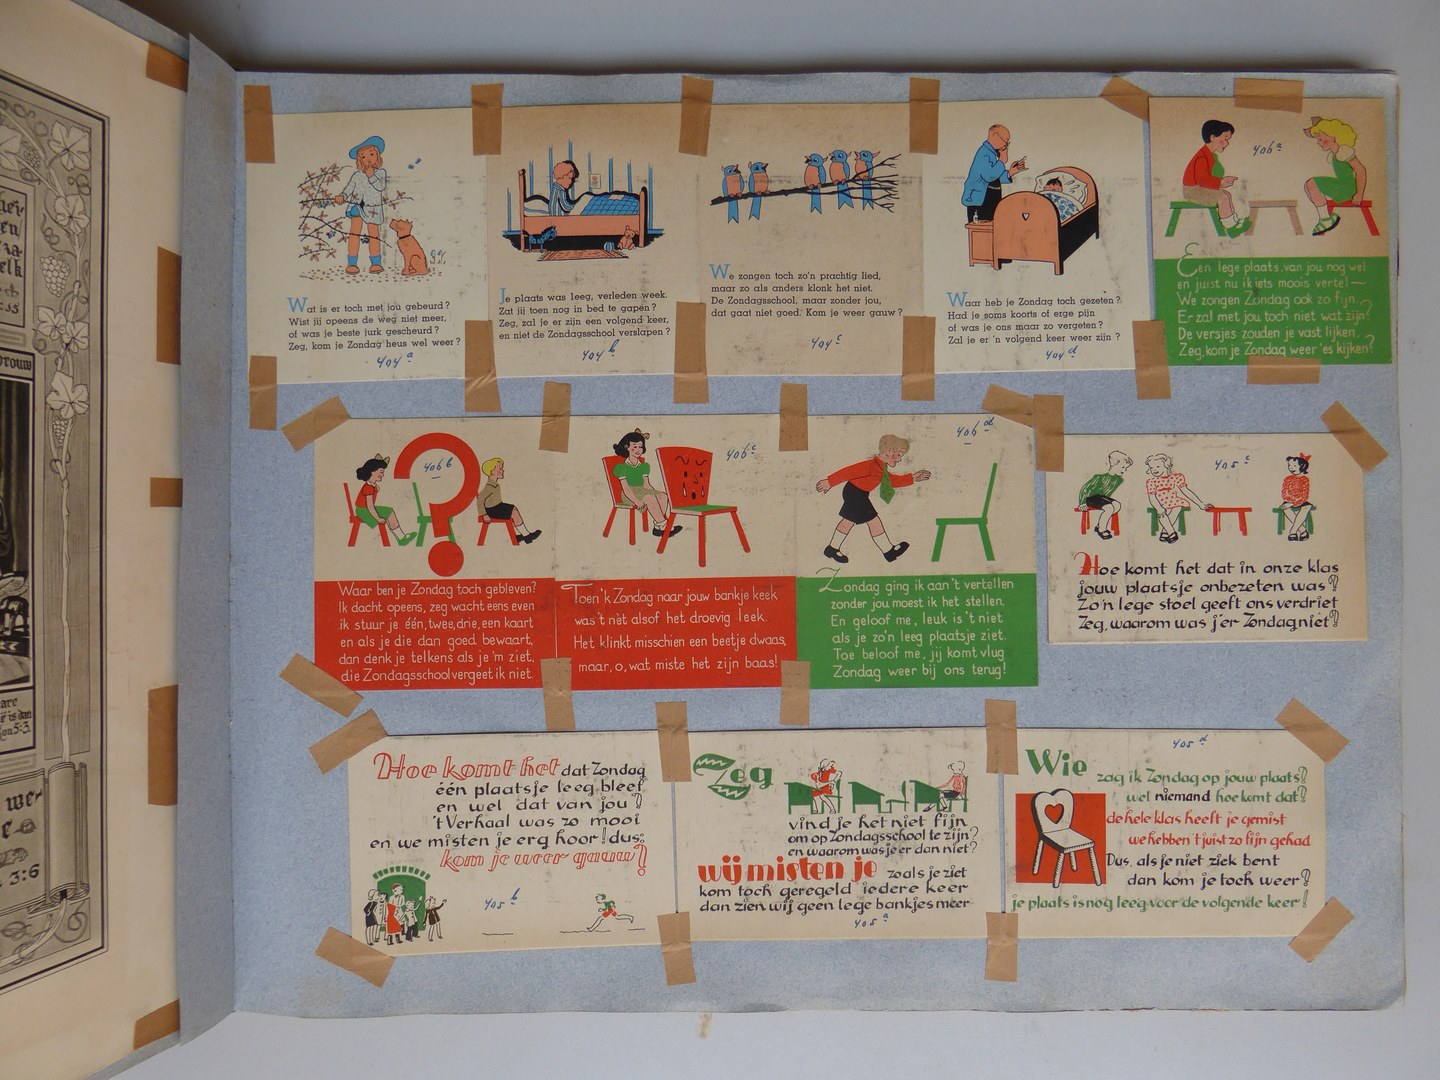 Wat is er toch met jou gebeurd?
Wist jij opeens de weg niet meer,
of was je beste jurk gescheurd?
Zeg, kom je Zondag heus wel weer?
404 a
Je plaats was leeg, verleden week.
Zat jij toen nog in bed te gapen?
Zeg, zal je er zijn een volgend keer,
en niet de Zondagsschool verslapen?
404 b
We zongen toch zo'n prachtig lied,
maar zo als anders klonk het niet.
De Zondagsschool, maar zonder jou,
dat gaat niet goed. Kom je weer gauw?
404 c
Waar heb je Zondag toch gezeten?
Had je soms koorts of erge pijn
of was je ons maar zo vergeten?
Zal je er 'n volgend keer weer zijn?
404 d
406 a
Een lege plaats, van jou nog wel
en juist nu ik iets moois vertel—
We zongen Zondag ook zo fijn.
Er zal met jou toch niet wat zijn?
De versjes zouden je vast lijken.
Zeg, kom je Zondag weer 'es kijken?
406 b
Waar ben je Zondag toch gebleven?
Ik dacht opeens, zeg wacht eens even
ik stuur je één, twee, drie, een kaart
en als je die dan goed bewaart,
dan denk je telkens als je 'm ziet,
die Zondagsschool vergeet ik niet.
406 c
Toen 'k Zondag naar jouw bankje keek
was 't nèt alsof het droevig leek.
Het klinkt misschien een beetje dwaas,
maar, o, wat miste het zijn baas!
406 d
Zondag ging ik aan 't vertellen
zonder jou moest ik het stellen.
En geloof me, leuk is 't niet
als je zo'n leeg plaatsje ziet.
Toe beloof me, jij komt vlug
Zondag weer bij ons terug!
405 c
Hoe komt het dat in onze klas
jouw plaatsje onbezeten was?
Zo'n lege stoel geeft ons verdriet
Zeg, waarom was j'er Zondag niet?
Hoe komt het dat Zondag
één plaatsje leeg bleef
en wel dat van jou?
't Verhaal was zo mooi
en we misten je erg hoor! dus:
kom je weer gauw?
405 b
Zeg
vind je het niet fijn
om op Zondagsschool te zijn?
en waarom was je er dan niet?
wij misten je zoals je ziet
kom toch geregeld iedere keer
dan zien wij geen lege bankjes meer
405 a
405 d
Wie
zag ik Zondag op jouw plaats?
wel niemand hoe komt dat?
de hele klas heeft je gemist
we hebben 't juist zo fijn gehad
Dus, als je niet ziek bent
dan kom je toch weer?
je plaats is nog leeg voor de volgende keer!
rouw
are
we-
3:6